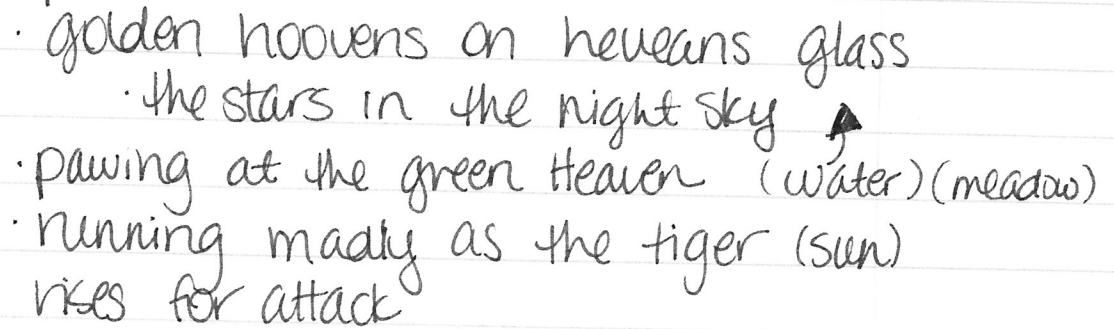 · golden hoovens on heveans glass
· the stars in the night sky
· pawing at the green Heaven (water) (meadow)
· running madly as the tiger (sun)
rises for attack